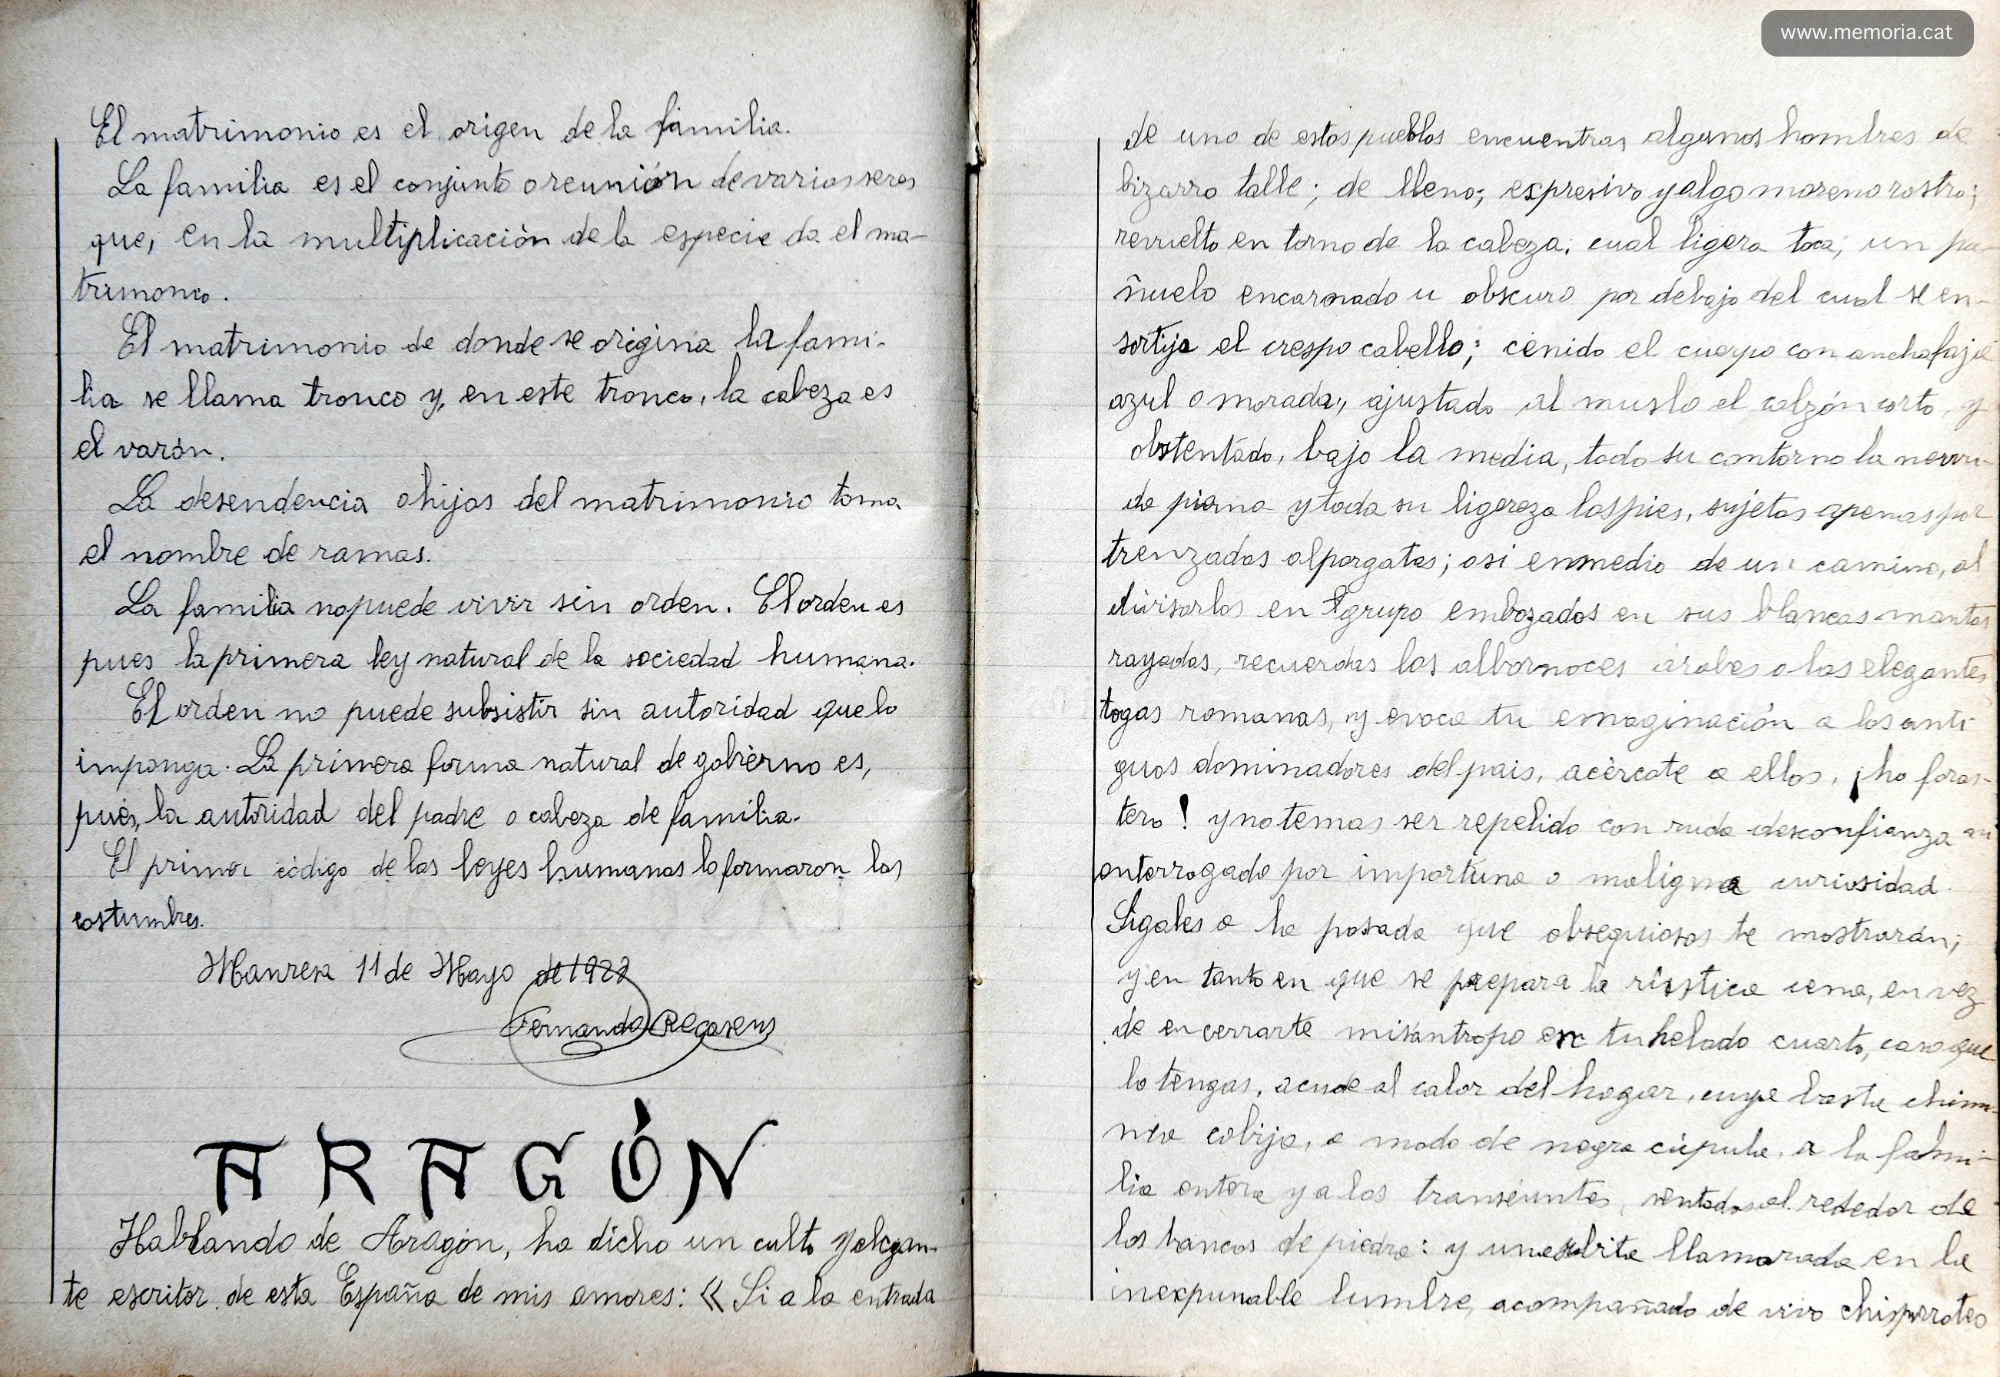 www.memoria.cat
El matrimonio es el origen de la familia.
La familia es el conjunto o reunión de varios seres
que, en la multiplicación de la especie da el ma-
trimonio.
El matrimonio de donde se origina la fami-
lia se llama tronco y, en este tronco, la cabeza es
el varón.
La desendencia o hijos del matrimonio toma
el nombre de ramas.
La familia no puede vivir sin orden. El orden es
pues la primera ley natural de la sociedad humana.
El orden no puede subsistir sin autoridad que lo
imponga. La primera forma natural de gobierno es,
pués, la autoridad del padre o cabeza de familia.
El primer código de las leyes humanas lo formaron las
costumbres.
Manresa 11 de Mayo de 1922
Fernando Regasens
ARAGÓN
Hablando de Aragón, ha dicho un culto y elegan-
te escritor de esta España de mis amores: « Si a la entrada
de uno de estos pueblos encuentras algunos hombres de
bizarro talle; de lleno; expresivo y algo moreno rostro;
revuelto en torno de la cabeza; cual ligera toca; un pa-
ñuelo encarnado u obscuro por debajo del cual se en-
sortija el crespo cabello; cenido el cuerpo con ancha faja
azul o morada, ajustado al muslo el calzón corto, y
obstentado, bajo la media, todo su contorno la nervu-
da pierna y toda su ligereza los pies, sujetos apenas por
trenzadas alpargatas; o si enmedio de un camino, al
divisarlos en grupo embozados en sus blancas mantas
rayadas, recuerdas los albornoces árabes o las elegantes
togas romanas, y evoca tu emaginación a los anti
guos dominadores del pais, acércate a ellos, ¡ho foras-
tero! y no temas ser repelido con ruda desconfianza ni
enterrogado por importuna o maligna curiosidad.
Sigales a la posada que obsequiosos te mostrarán;
y en tanto en que se prepara la rústica cena, en vez
de encerrarte misántropo en tu helado cuarto, caso que
lo tengas, acude al calor del hogar, cuya basta chime-
nea cobija, a modo de negra cúpula, a la fami-
lia entera y a los transeúntes, sentados al rededor de
los bancos de piedra: y una subita llamarada en la
inexpunable lumbre, acompañado de vivo chisporroteo